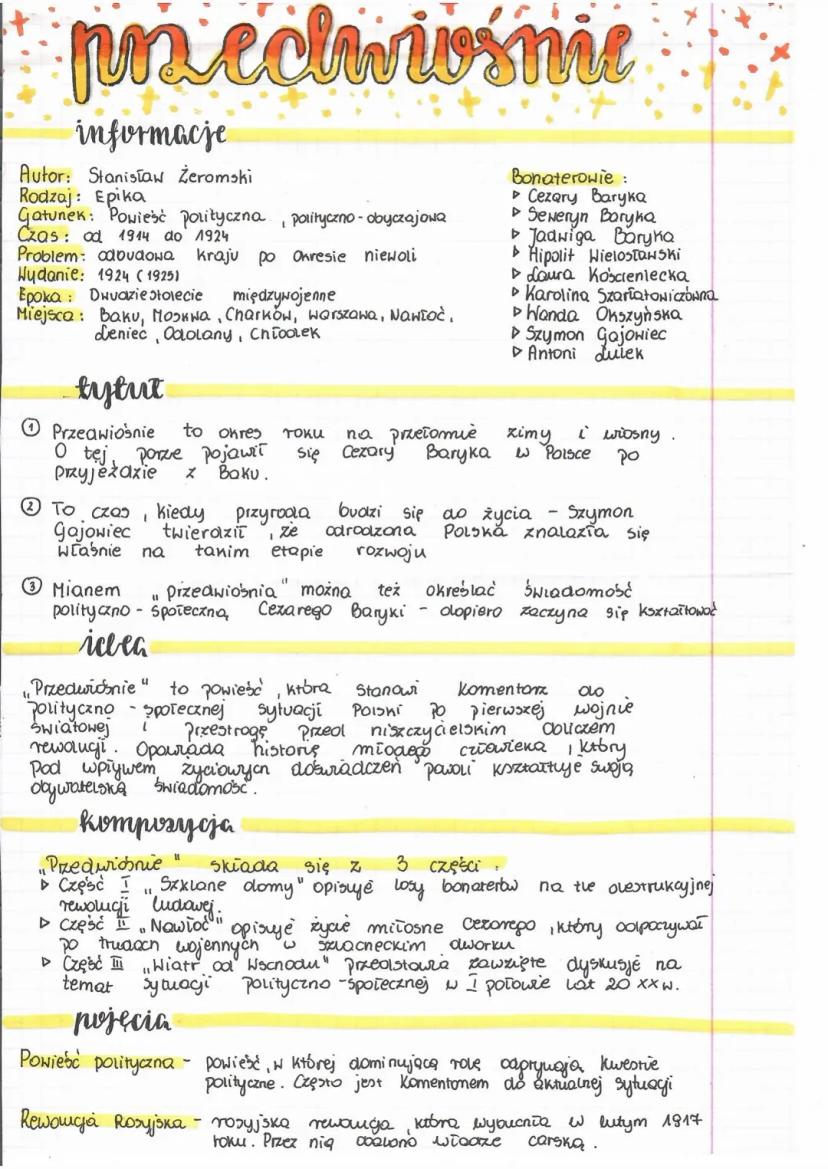 przedwiośnie
informacje
Autor: Stanisław Żeromski
Rodzaj: Epika
Gatunek: Powieść polityczna, polityczno-obyczajowa
Czas: od 1914 do 1924
Problem: odbudowa kraju po okresie niewoli
Wydanie: 1924 (1925)
Epoka: Dwudziestolecie międzywojenne
Miejsca: Baku, Moskwa, Charków, Warszawa, Nawłoć,
Leniec, Odolany, Chłodek
Bohaterowie:
▷ Cezary Baryka
▷ Seweryn Baryka
▷ Jadwiga Baryka
▷ Hipolit Wielosławski
▷ Laura Kościeniecka
▷ Karolina Szarłatowiczówna
▷ Wanda Okszyńska
▷ Szymon Gajowiec
▷ Antoni Lulek
tytuł
① Przedwiośnie to okres roku na przełomie zimy i wiosny.
O tej porze pojawił się Cezary Baryka w Polsce po
przyjeździe z Baku.
② To czas, kiedy przyroda budzi się do życia - Szymon
Gajowiec twierdził, że odrodzona Polska znalazła się
właśnie na takim etapie rozwoju
③ Mianem "przedwiośnia" można też określać świadomość
polityczno-społeczną Cezarego Baryki - dopiero zaczyna się kształtować
idea
„Przedwiośnie" to powieść, która stanowi komentarz do
polityczno-społecznej sytuacji Polski po pierwszej wojnie
światowej i przestrogę przed niszczycielskim obliczem
rewolucji. Opowiada historię młodego człowieka, który
pod wpływem życiowych doświadczeń powoli kształtuje swoją
obywatelską świadomość.
kompozycja
„Przedwiośnie" składa się z 3 części:
▷ Część I „Szklane domy" opisuje losy bohaterów na tle destrukcyjnej
rewolucji ludowej.
▷ Część II „Nawłoć" opisuje życie miłosne Cezarego, który odpoczywał
po trudach wojennych w szlacheckim dworku
▷ Część III „Wiatr od Wschodu" przedstawia zawzięte dyskusje na
temat sytuacji polityczno-społecznej w I połowie lat 20 XX w.
pojęcia
Powieść polityczna - powieść, w której dominującą rolę odgrywają kwestie
polityczne. Często jest komentarzem do aktualnej sytuacji
Rewolucja Rosyjska - rosyjska rewolucja, która wybuchła w lutym 1917
roku. Przez nią obalono władzę carską.